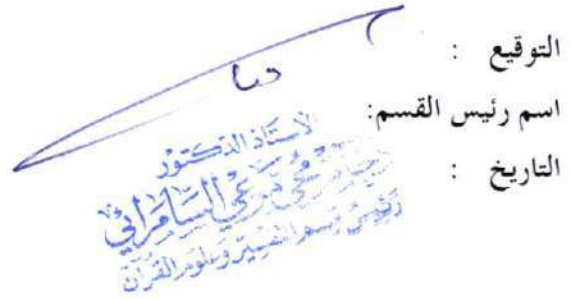 التوقيع :
اسم رئيس القسم:
التاريخ :
الأستاذ الدكتور
السامرائي
رئيس قسم التفسير وعلوم القرآن